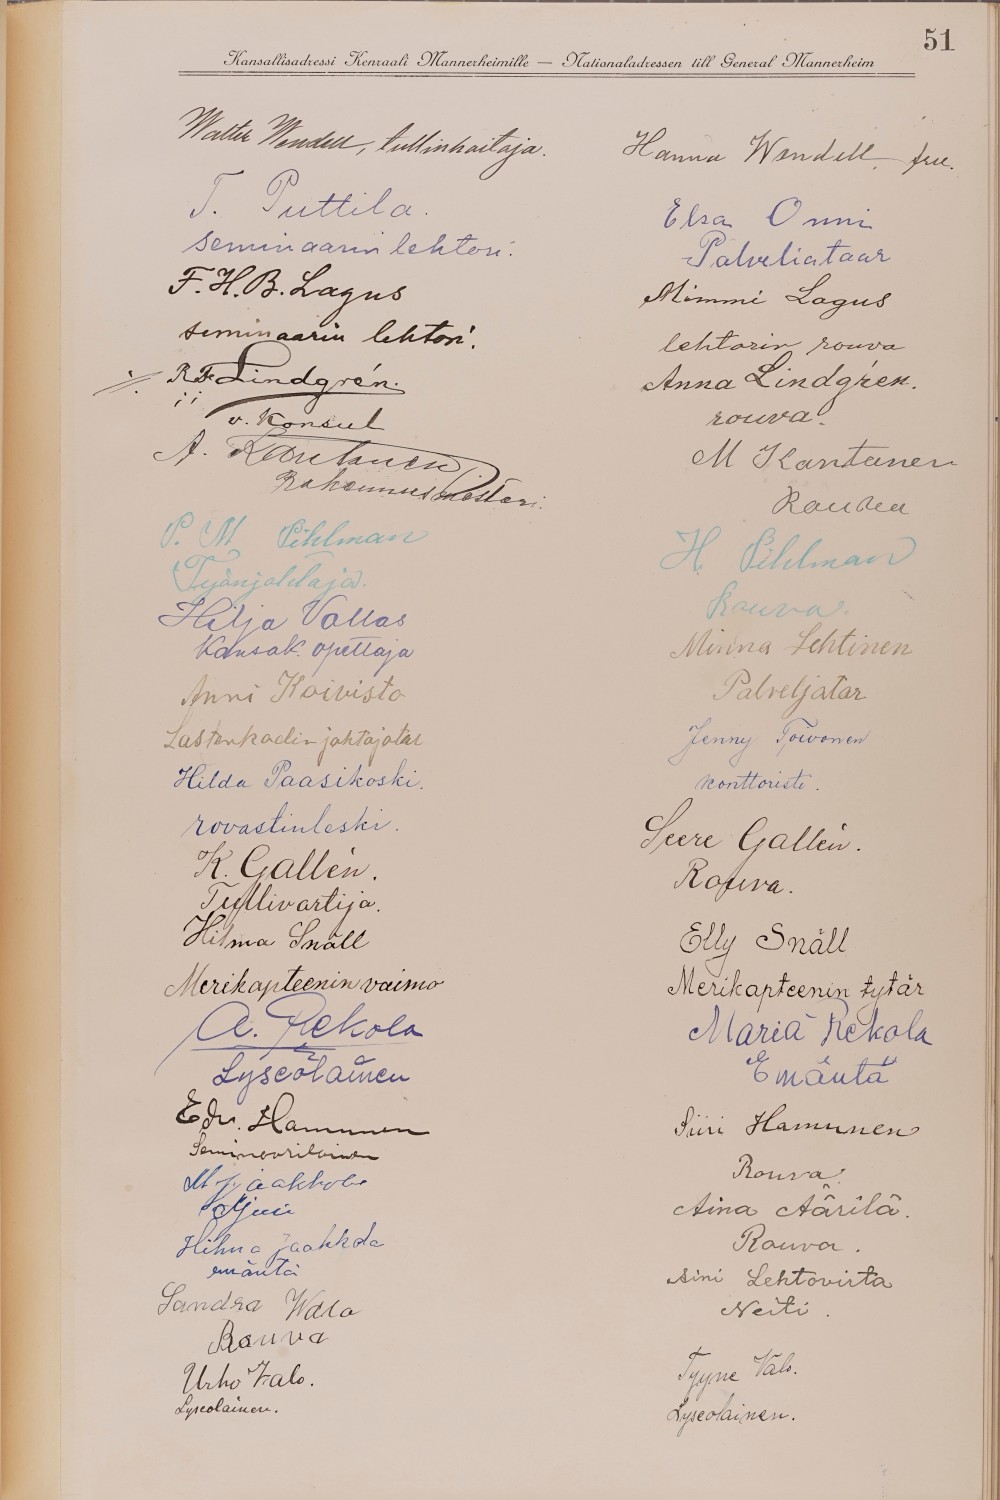 51
Kansallisadressi Kenraali Mannerheimille — Nationaladressen till General Mannerheim
Walter Wendell, tullinhoitaja.
T. Puttila.
seminaarin lehtori.
F. H. B. Lagus
seminaarin lehtori.
Lindgrén.
v. Konsul
A. Kantanen
Rakennusmestari.
P. M Pihlman
Työnjohtaja.
Hilja Vallas
Kansak. opettaja
Anni Koivisto
Lastenkodin johtajatar
Hilda Paasikoski.
rovastinleski.
K. Gallén.
Tullivartija.
Hilma Snäll
Merikapteenin vaimo
A. Rekola
Lyseolainen
Edv. Hamunen
Seminaarilainen
M Jaakkola
Hilma Jaakkola
emäntä
Sandra Walo
Rouva
Urho Valo.
Lyseolainen.
Hanna Wendell, fru.
Elsa Onni
Palveliataar
Mimmi Lagus
lehtorin rouva
Anna Lindgrén.
rouva.
M Kantanen
Rouva
H. Pihlman
Rouva.
Minna Lehtinen
Palveljatar
Jenny Toivonen
konttoristi.
Seere Gallén.
Rouva.
Elly Snäll
Merikapteenin tytär
Maria Rekola
Emäntä
Siiri Hamunen
Rouva.
Aina Äärilä.
Rouva.
Aini Lehtovirta
Neiti.
Tyyne Valo.
Lyseolainen.